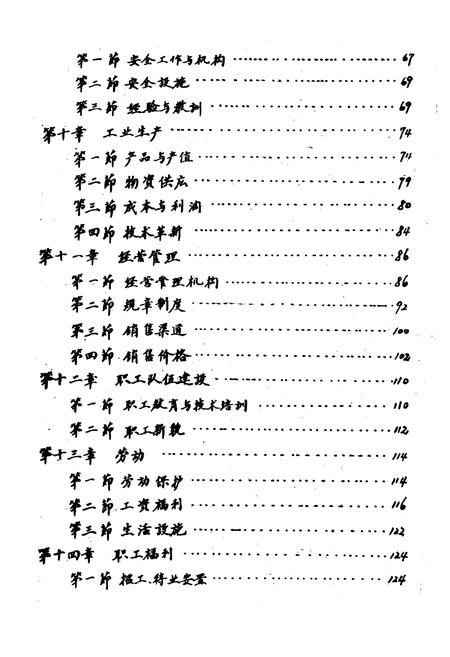 第一节 安全工作与机构 …………………… 67
第二节 安全设施 …………………… 69
第三节 经验与教训 …………………… 69
第十章 工业生产 …………………… 74
第一节 产品与产值 …………………… 74
第二节 物资供应 …………………… 79
第三节 成本与利润 …………………… 80
第四节 技术革新 …………………… 84
第十一章 经营管理 …………………… 86
第一节 经营管理机构 …………………… 86
第二节 规章制度 …………………… 92
第三节 销售渠道 …………………… 100
第四节 销售价格 …………………… 102
第十二章 职工队伍建设 …………………… 110
第一节 职工教育与技术培训 …………………… 110
第二节 职工新貌 …………………… 112
第十三章 劳动 …………………… 114
第一节 劳动保护 …………………… 114
第二节 工资福利 …………………… 116
第三节 生活设施 …………………… 122
第十四章 职工福利 …………………… 124
第一节 招工、待业安置 …………………… 124